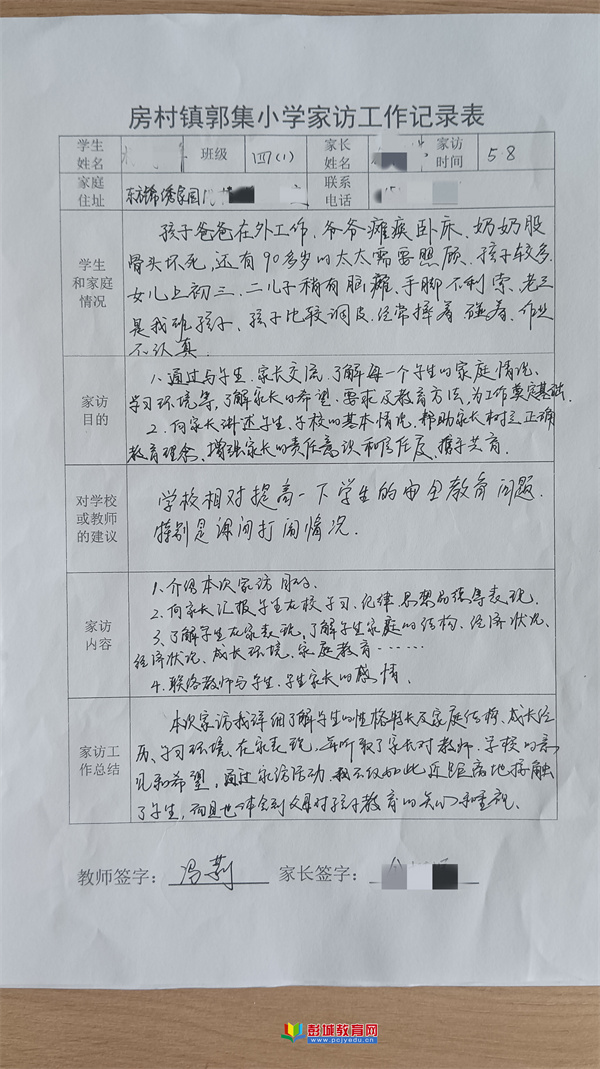 房村镇郭集小学家访工作记录表
学生姓名 班级 四(1) 家长姓名 家访时间 5 8
家庭住址 东方锦绣家园 联系电话
学生和家庭情况
孩子爸爸在外工作、爷爷瘫痪卧床、奶奶股
骨头坏死,还有90多岁的太太需要照顾、孩子较多
女儿上初三、二儿子稍有脑瘫、手脚不利索、老三
是我班孩子、孩子比较调皮、经常摔着碰着、作业
不认真.
家访目的
1、通过与学生、家长交流、了解每一个学生的家庭情况、
学习环境等,了解家长的希望、要求及教育方法,为工作奠定基础.
2、向家长讲述学生、学校的基本情况、帮助家长树立正确
教育理念、增强家长的责任意识和信任度、携手共育.
对学校或教师的建议
学校相对提高一下学生的安全教育问题.
特别是课间打闹情况.
家访内容
1、介绍本次家访目的、
2、向家长汇报学生在校学习、纪律、思想品德等表现、
3、了解学生在家表现,了解学生家庭的结构、经济状况、
经济状况、成长环境、家庭教育……
4、联络教师与学生、学生家长的感情、
家访工作总结
本次家访我详细了解学生的性格特长及家庭结构、成长经
历、学习环境、在家表现,并听取了家长对教师、学校的意
见和希望,通过家访活动、我不仅如此近距离地接触
了学生,而且也体会到父母对孩子教育的关心和重视.
教师签字: 冯莉 家长签字:
彭城教育网
www.pcjyedu.cn